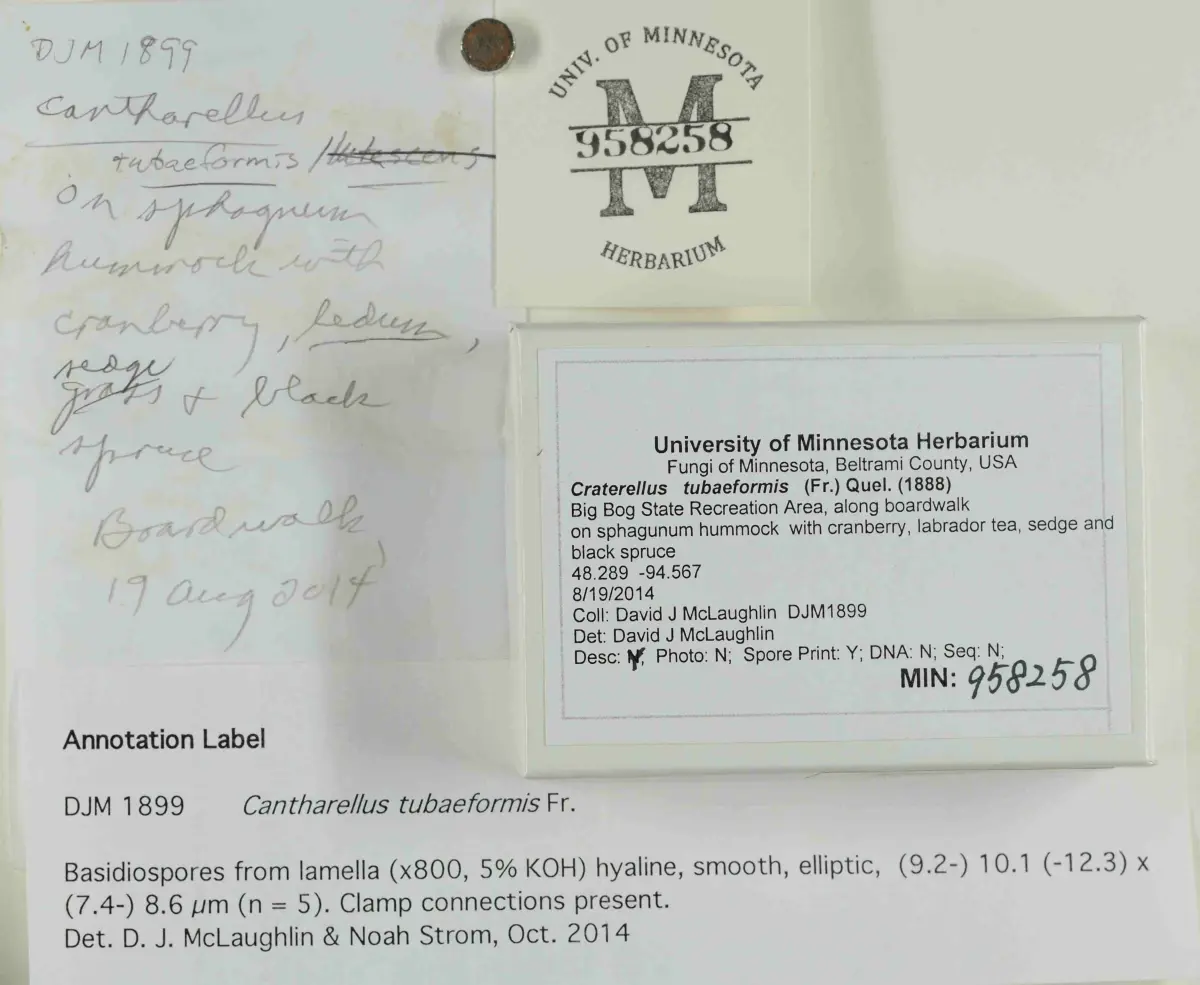 DJM 1899
Cantharellus
tubaeformis / lutescens
on sphagnum
hummock with
cranberry, ledum,
sedge
grass & black
spruce
Boardwalk
19 Aug 2014
UNIV. OF MINNESOTA
M
958258
HERBARIUM
University of Minnesota Herbarium
Fungi of Minnesota, Beltrami County, USA
Craterellus tubaeformis (Fr.) Quel. (1888)
Big Bog State Recreation Area, along boardwalk
on sphagunum hummock with cranberry, labrador tea, sedge and
black spruce
48.289 -94.567
8/19/2014
Coll: David J McLaughlin DJM1899
Det: David J McLaughlin
Desc: Y; Photo: N; Spore Print: Y; DNA: N; Seq: N;
MIN: 958258
Annotation Label
DJM 1899 Cantharellus tubaeformis Fr.
Basidiospores from lamella (x800, 5% KOH) hyaline, smooth, elliptic, (9.2-) 10.1 (-12.3) x
(7.4-) 8.6 µm (n = 5). Clamp connections present.
Det. D. J. McLaughlin & Noah Strom, Oct. 2014